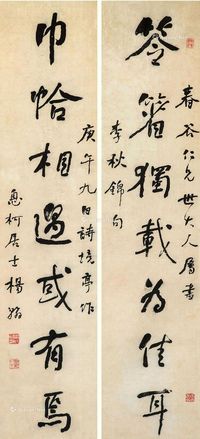 春谷仁兄世大人屬書
答簹獨載為佳耳
李秋錦句
巾帢相遇或有焉
庚午九日詩境亭作
惠柯居士楊